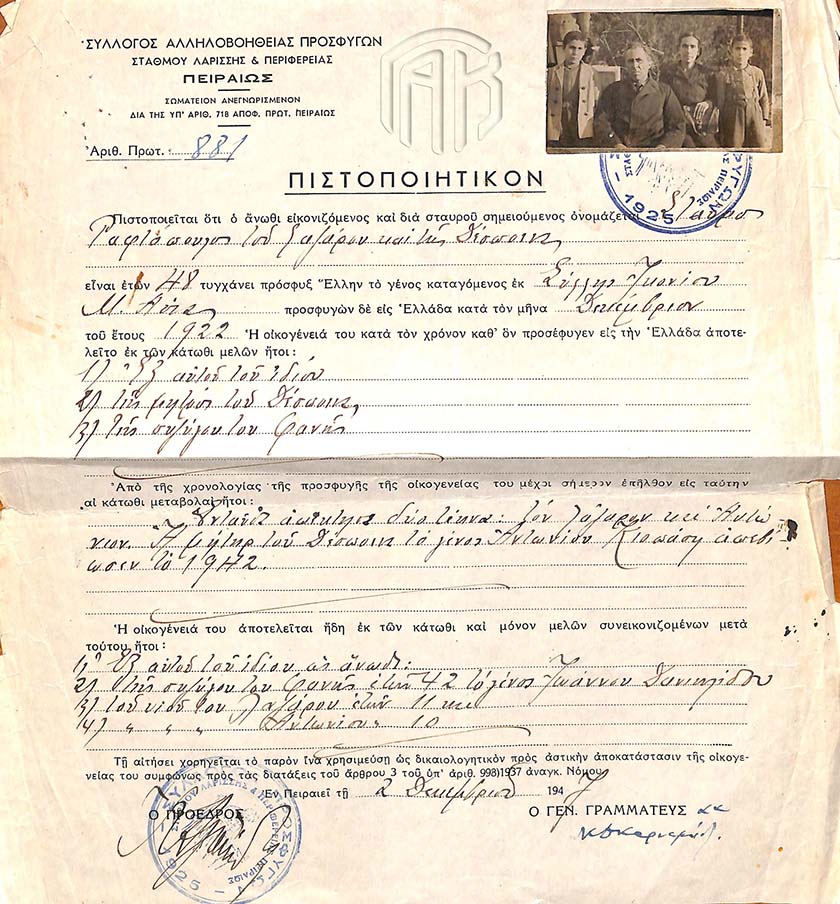 ΣΥΛΛΟΓΟΣ ΑΛΛΗΛΟΒΟΗΘΕΙΑΣ ΠΡΟΣΦΥΓΩΝ
ΣΤΑΘΜΟΥ ΛΑΡΙΣΣΗΣ & ΠΕΡΙΦΕΡΕΙΑΣ
ΠΕΙΡΑΙΩΣ
ΣΩΜΑΤΕΙΟΝ ΑΝΕΓΝΩΡΙΣΜΕΝΟΝ
ΔΙΑ ΤΗΣ ΥΠ' ΑΡΙΘ. 718 ΑΠΟΦ. ΠΡΩΤ. ΠΕΙΡΑΙΩΣ
Ἀριθ. Πρωτ. 881
ΠΙΣΤΟΠΟΙΗΤΙΚΟΝ
1925
Πιστοποιεῖται ὅτι ὁ ἄνωθι εἰκονιζόμενος καὶ διὰ σταυροῦ σημειούμενος ὀνομάζεται Σταῦρος
Ραφτόπουλος τοῦ Λαζάρου καὶ τῆς Δέσποινας
εἶναι ἐτῶν 48 τυγχάνει πρόσφυξ Ἕλλην τὸ γένος καταγόμενος ἐκ Σύλλης Ἰκονίου
Μ. Ασίας προσφυγὼν δὲ εἰς Ἑλλάδα κατὰ τὸν μῆνα Δεκέμβριον
τοῦ ἔτους 1922 Ἡ οἰκογένειά του κατὰ τὸν χρόνον καθ' ὃν προσέφυγεν εἰς τὴν Ἑλλάδα ἀποτε-
λεῖτο ἐκ τῶν κάτωθι μελῶν ἤτοι:
1) Ἐξ αὐτοῦ τοῦ ἰδίου
2) τῆς μητρός του Δέσποινας
3) τῆς συζύγου του Φανῆς
Ἀπὸ τῆς χρονολογίας τῆς προσφυγῆς τῆς οἰκογενείας του μέχρι σήμερον ἐπῆλθον εἰς ταύτην
αἱ κάτωθι μεταβολαὶ ἤτοι:
ἀπέκτησε δύο τέκνα: τὸν Λάζαρον καὶ Ἀντώ-
νιον. Ἡ μήτηρ του Δέσποινα τὸ γένος Ἀντωνίου ἀπεβί-
ωσεν τὸ 1942.
Ἡ οἰκογένειά του ἀποτελεῖται ἤδη ἐκ τῶν κάτωθι καὶ μόνον μελῶν συνεικονιζομένων μετὰ
τούτου, ἤτοι:
1) Ἐξ αὐτοῦ τοῦ ἰδίου ὡς ἄνωθι:
2) τῆς συζύγου του Φανῆς ἐτῶν 42 τὸ γένος Ἰωάννου Δανιηλίδου
3) τοῦ υἱοῦ του Λαζάρου ἐτῶν 11 καὶ
4) " " " Ἀντωνίου " 10
Τῇ αἰτήσει χορηγεῖται τὸ παρὸν ἵνα χρησιμεύσῃ ὡς δικαιολογητικὸν πρὸς ἀστικὴν ἀποκατάστασιν τῆς οἰκογε-
νείας του συμφώνως πρὸς τὰς διατάξεις τοῦ ἄρθρου 3 τοῦ ὑπ' ἀριθ. 993)1937 ἀναγκ. Νόμου
Ἐν Πειραιεῖ τῇ 2 Δεκεμβρίου 1947
Ο ΠΡΟΕΔΡΟΣ
Ο ΓΕΝ. ΓΡΑΜΜΑΤΕΥΣ
1925